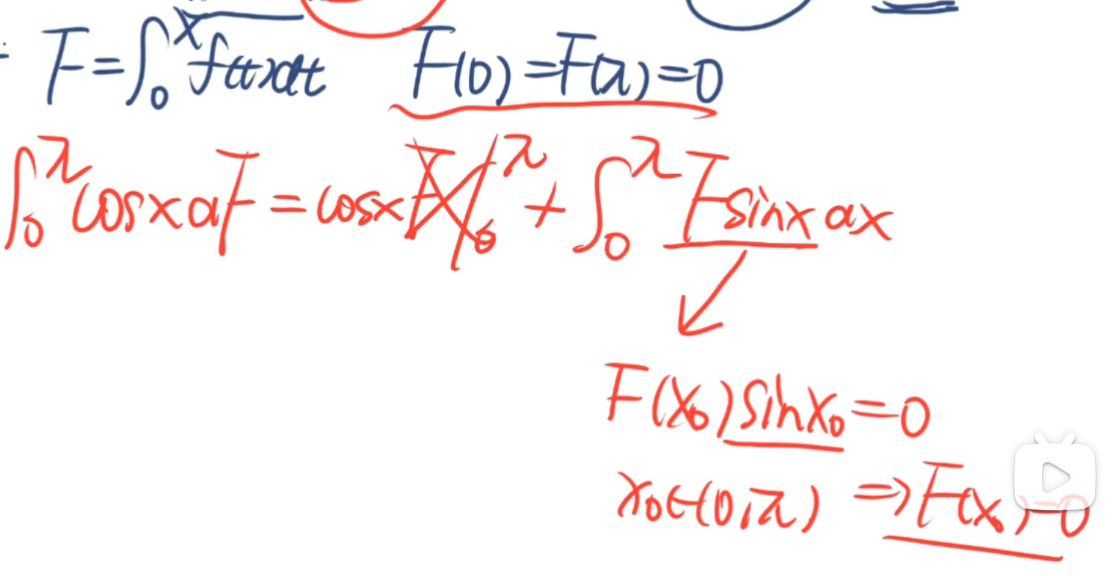 F=∫₀ˣ f(t)dt F(0)=F(π)=0
∫₀^π cosx dF = cosx F|₀^π + ∫₀^π F sinx dx
F(x₀) sinx₀ = 0
x₀∈(0,π) ⇒ F(x₀)=0